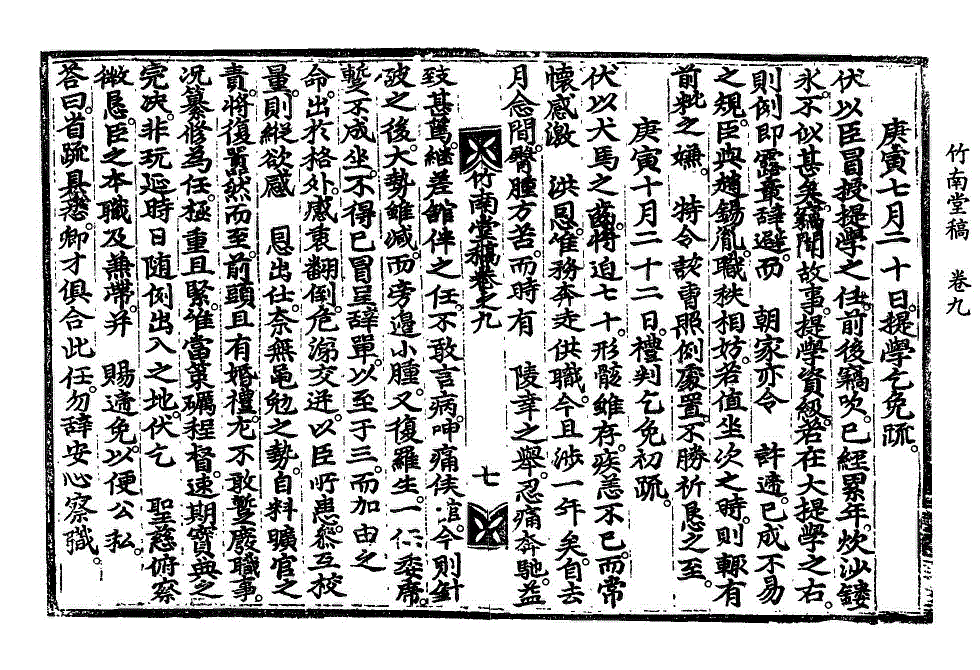 竹南堂稿　卷九
庚寅七月二十日。提學乞免疏。
伏以臣冒授提學之任。前後竊吹。已經累年。炊沙鏤
氷。不似甚矣。竊聞故事。提學資級。若在大提學之右。
則例卽露章辭避。而　朝家亦令　許遞。已成不易
之規。臣與趙錫胤。職秩相妨。若値坐次之時。則輒有
前批之嫌。　特令該曹照例處置。不勝祈恳之至。
庚寅十月二十二日。禮判乞免初疏。
伏以犬馬之齒。將迫七十。形骸雖存。疾恙不已。而常
懷感激　洪恩。惟務奔走供職。今且涉一年矣。自去
月念間。臀腫方苦。而時有　陵幸之擧。忍痛奔馳。益
竹南堂稿卷之九
七
致甚篤。繼差館伴之任。不敢言病。呻痛俟館。今則針
破之後。大勢雖減。而旁邊小腫。又復羅生。一仁委席。
暫不成坐。不得已冒呈辭單。以至于三。而加由之
命。出於格外。感衷翻倒。危涕交迸。以臣所患。參互挍
量。則縱欲感　恩出仕。奈無黽勉之勢。自料曠官之
責。將復囂然而至。前頭且有婚禮。尤不敢暫廢職事。
况纂修爲任。極重且緊。准當策礪程督。速期寶典之
完决。非玩延時日。随例出入之地。伏乞　聖慈俯察
微恳。臣之本職及兼帶。并　賜遞免。以便公私。
答曰。省疏具悉。卿才俱合此任。勿辭。安心察職。